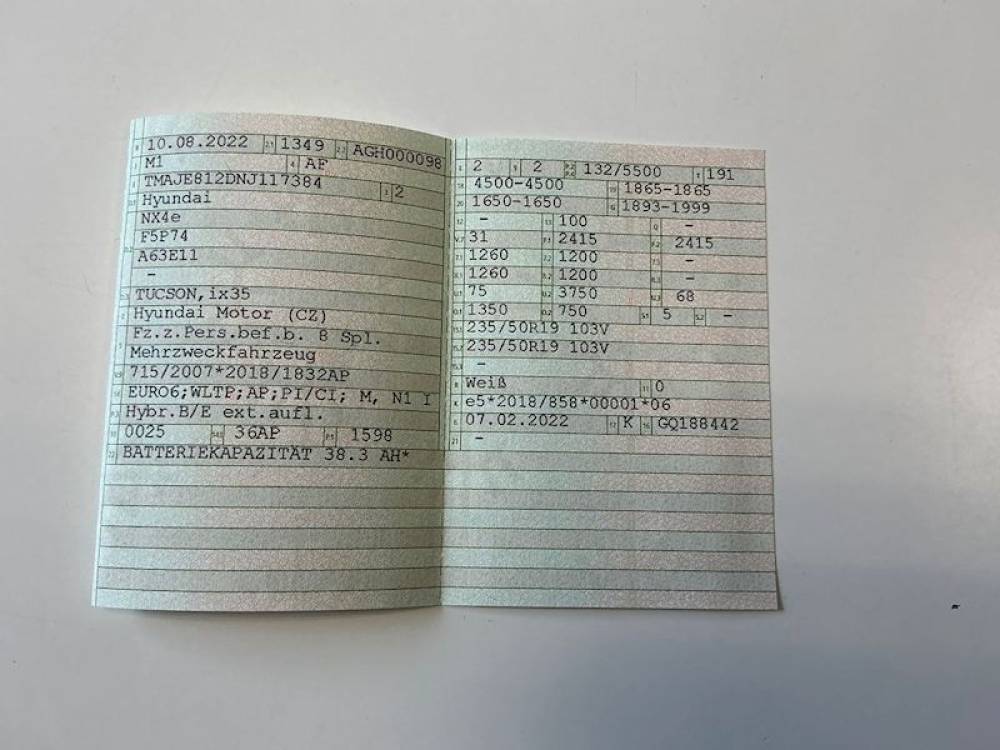 10.08.2022 2.1 1349 2.2 AGH000098
M1 4 AF
TMAJE812DNJ117384 2
Hyundai
NX4e
F5P74
A63E11
–
TUCSON,ix35
Hyundai Motor (CZ)
Fz.z.Pers.bef.b. 8 Spl.
Mehrzweckfahrzeug
715/2007*2018/1832AP
EURO6;WLTP;AP;PI/CI; M, N1 I
Hybr.B/E ext.aufl.
0025 36AP 1598
22 BATTERIEKAPAZITÄT 38.3 AH*
2 2 132/5500 T 191
4500-4500 1865-1865
1650-1650 1893-1999
– 100 Q –
31 2415 2415
1260 1200 –
1260 1200 –
75 3750 68
1350 750 5 –
235/50R19 103V
235/50R19 103V
–
Weiß 11 0
e5*2018/858*00001*06
07.02.2022 17 K 16 GQ188442
21 –